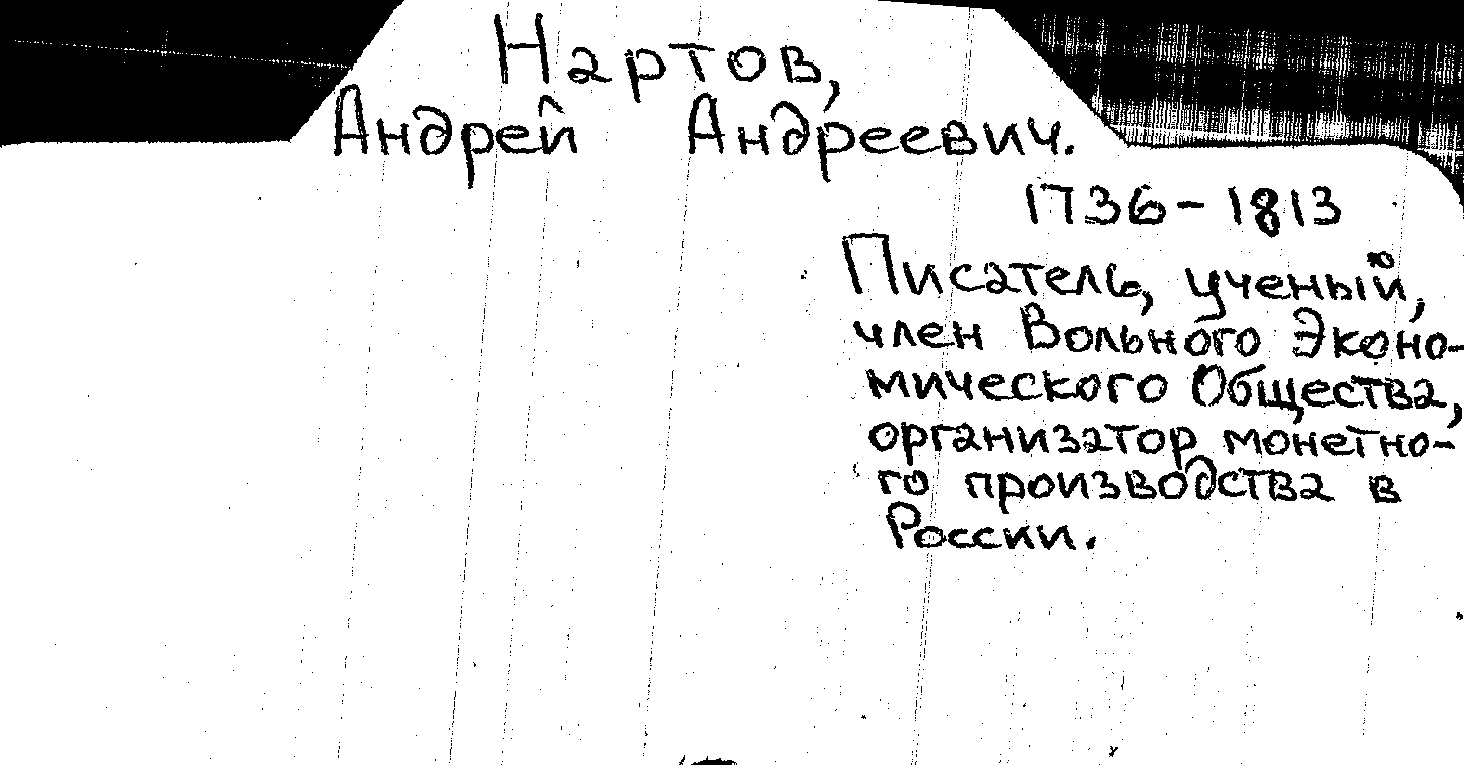 Нартов,
Андрей Андреевич.
1736-1813
Писатель, ученый,
член Вольного Эконо-
мического Общества,
организатор монетно-
го производства в
России.